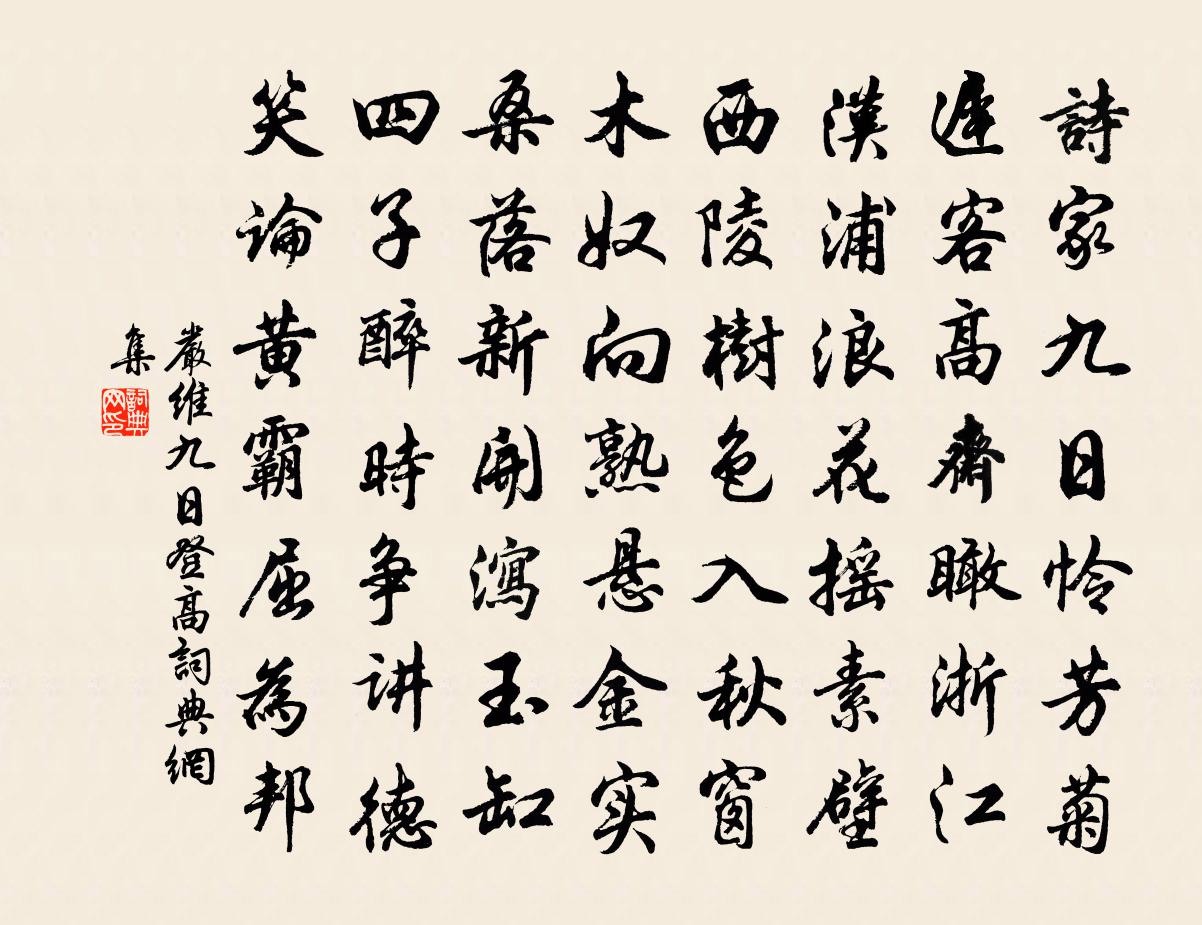 詩家九日怜芳菊
遲客高齋瞰浙江
漢浦浪花摇素壁
西陵樹色入秋窗
木奴向熟悬金实
桑落新開瀉玉缸
四子醉時争讲德
笑論黄霸屈為邦
嚴維九日登高詞典網
集
詞典
网印